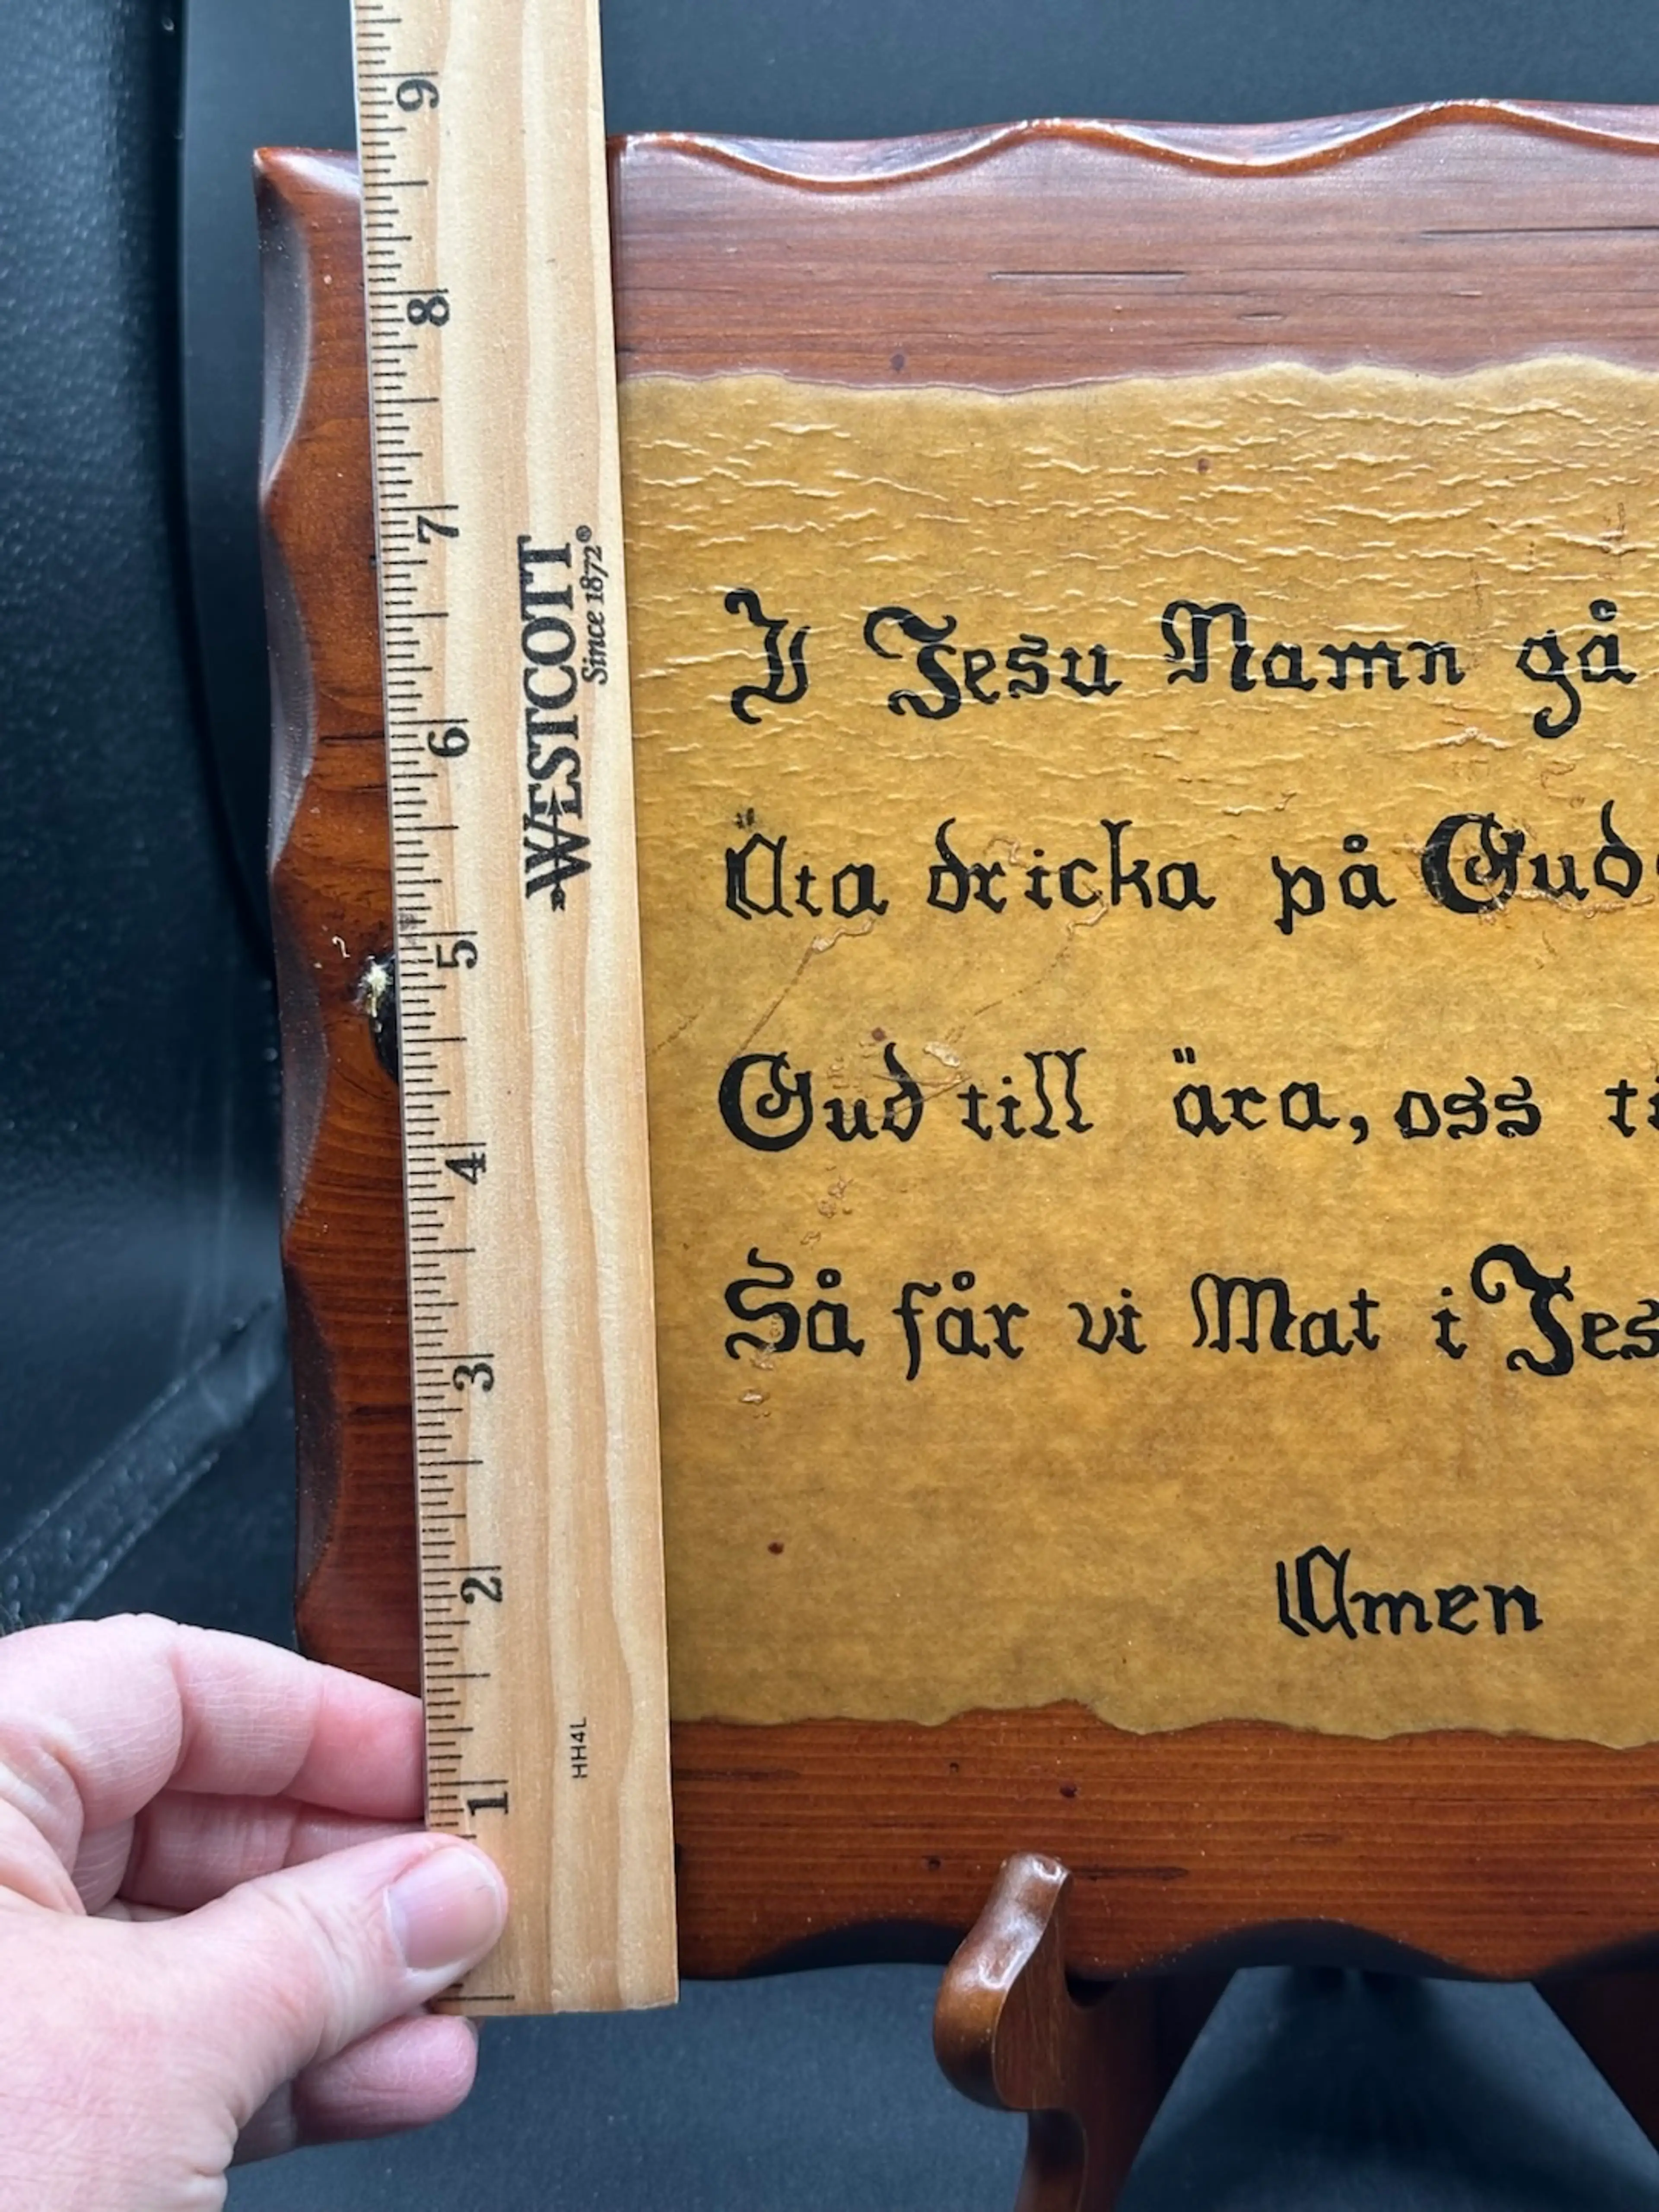 I Jesu Namn gå
Äta dricka på Guds
Gud till ära, oss ti
Så får vi Mat i Jes
Amen
WESTCOTT
Since 1872®
HH4L
9
8
7
6
5
4
3
2
1